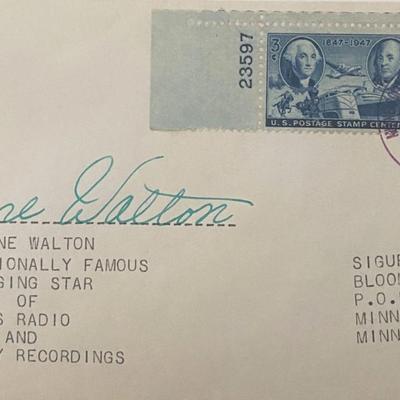 23597
3¢ 1847-1947
U.S. POSTAGE STAMP CENTE
ne Walton
NE WALTON
IONALLY FAMOUS
GING STAR
OF
S RADIO
AND
Y RECORDINGS
SIGUE
BLOOM
P.O.
MINN
MINN